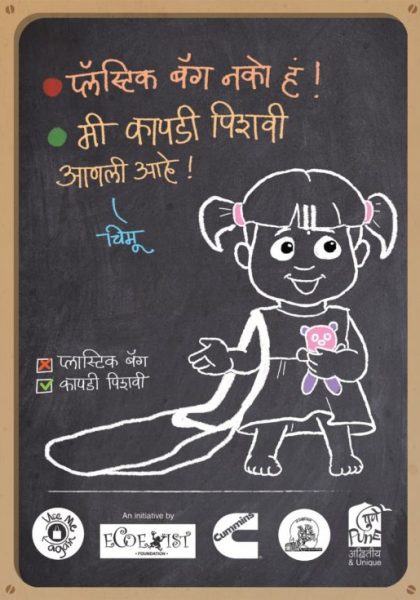 प्लॅस्टिक बॅग नको हं!
मी कापडी पिशवी
आणली आहे!
चिमू
प्लास्टिक बॅग
कापडी पिशवी
Use Me
again
An initiative by
ECOEXIST
FOUNDATION
Cummins
पुणे
PUNE
अद्वितीय
& Unique